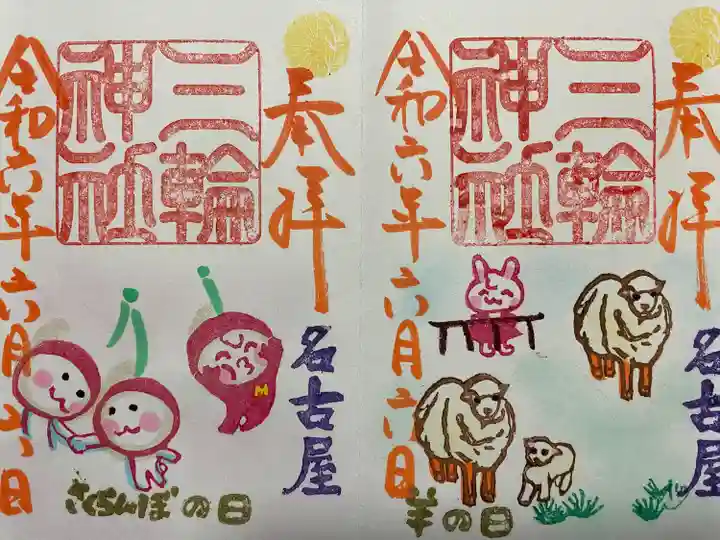 奉拝
三輪
神社
名古屋
令和六年六月六日
羊の日
奉拝
三輪
神社
名古屋
令和六年六月六日
さくらんぼの日
M